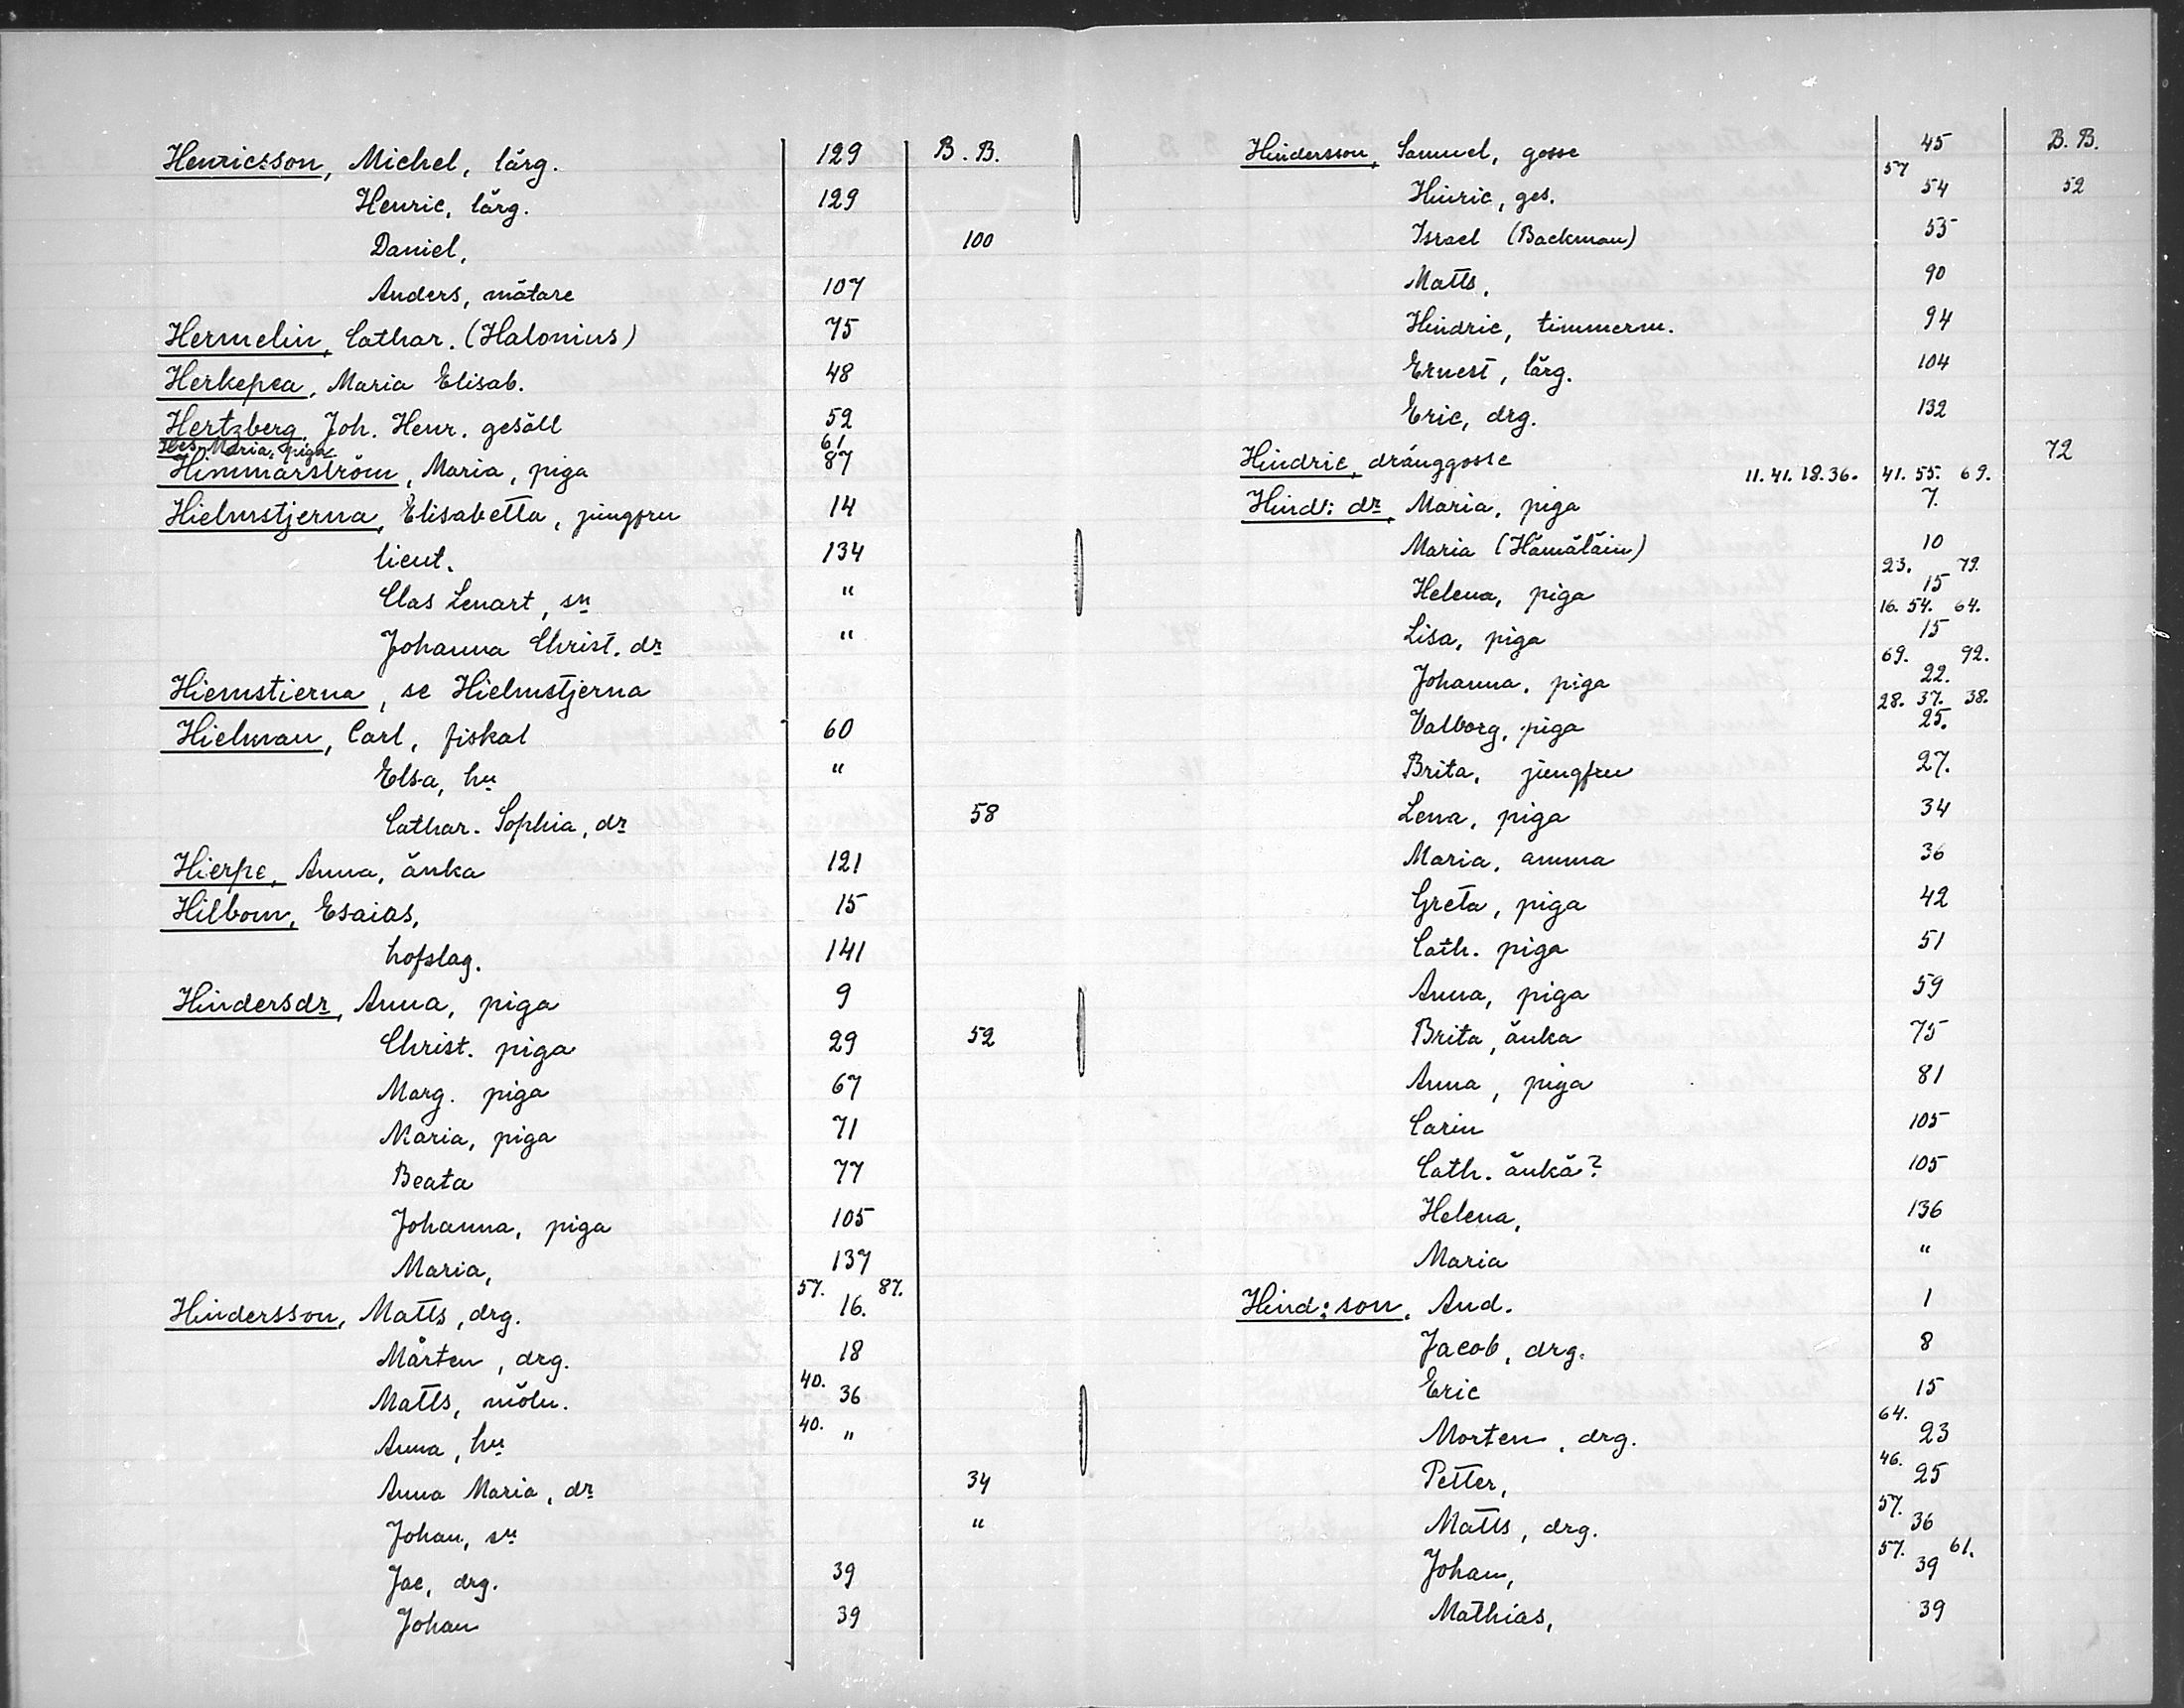 Henricsson, Michel, lärg. 129 B. B.
Henric, lärg. 129
Daniel, 100
Anders, mätare 107
Hermelin, Cathar. (Halonius) 75
Herkepea, Maria Elisab. 48
Hertzberg, Joh. Henr. gesäll 52
Hes, Maria, piga 61
Himmarström, Maria, piga 87
Hielmstjerna, Elisabetta, jungfru 14
lieut. 134
Clas Lenart, sn "
Johanna Christ. dr "
Hiemstierna, se Hielmstjerna
Hielman, Carl, fiskal 60
Elsa, hu "
Cathar. Sophia, dr 58
Hierpe, Anna, änka 121
Hilbom, Esaias, 15
hofslag. 141
Hindersdr, Anna, piga 9
Christ. piga 29 52
Marg. piga 67
Maria, piga 71
Beata 77
Johanna, piga 105
Maria, 137
57. 87.
Hindersson, Matts, drg. 16.
Mårten, drg. 18
Matts, möln. 40. 36
Anna, hu 40. "
Anna Maria, dr 34
Johan, sn "
Jac, drg. 39
Johan 39
Hindersson, Samuel, gosse 45 B. B.
57
Hinric, ges. 54 52
Israel (Backman) 55
Matts, 90
Hindric, timmerm. 94
Ernest, lärg. 104
Eric, drg. 132
Hindric, dränggosse 72
11. 41. 18. 36. 41. 55. 69.
Hind: dr, Maria, piga 7.
Maria (Hämäläin) 10
23. 79.
Helena, piga 15
16. 54. 64.
Lisa, piga 15
69. 92.
Johanna, piga 22.
28. 37. 38.
Valborg, piga 25.
Brita, jungfru 27.
Lena, piga 34
Maria, amma 36
Greta, piga 42
Cath. piga 51
Anna, piga 59
Brita, änka 75
Anna, piga 81
Carin 105
Cath. änkä? 105
Helena, 136
Maria "
Hind: son, And. 1
Jacob, drg. 8
Eric 15
64.
Morten, drg. 23
46.
Petter, 25
57.
Matts, drg. 36
57. 61.
Johan, 39
Mathias, 39